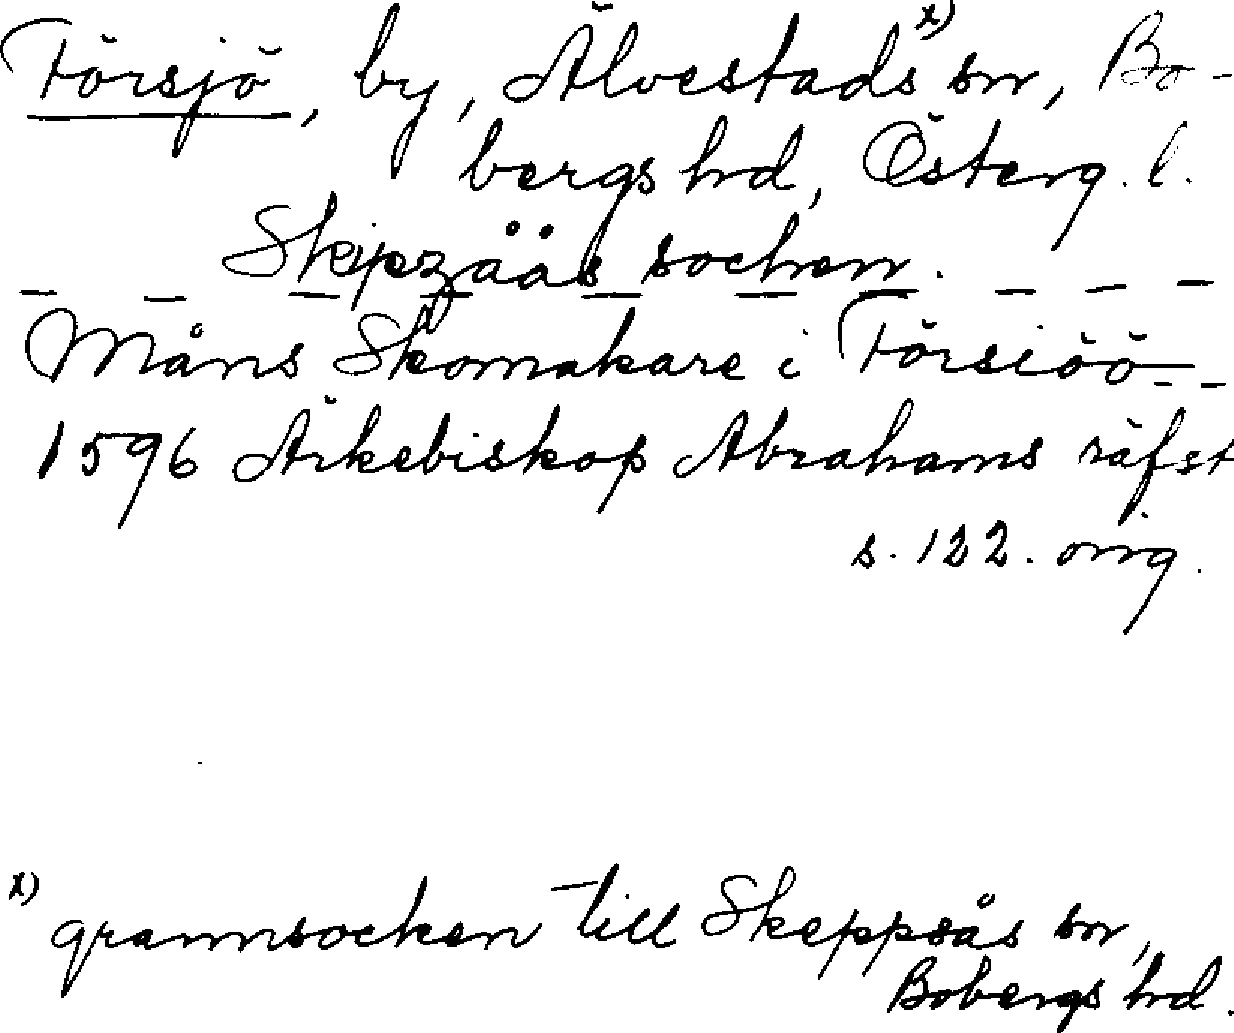 Försjö, by, Älvestads x) sn, Bo-
bergs hd, Österg. l.
Skipzåås sochen.
Måns Skomakare i Försiöö
1596 Ärkebiskop Abrahams räfst
s. 122. orig.
x) grannsocken till Skeppsås sn,
Bobergs hd.